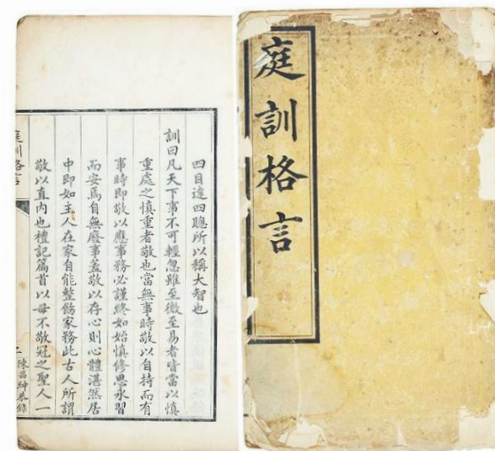 庭訓格言
四目達四聰所以稱大智也
訓曰凡天下事不可輕忽雖至微至易者皆當以慎
重處之慎重者敬也當無事時敬以自持而有
事時即敬以應事務必謹終如始慎修思永習
而安焉自無廢事蓋敬以存心則心體湛然居
中即如主人在家自能整飭家務此古人所謂
敬以直內也禮記篇首以毋不敬冠之聖人一
庭訓格言
陳昌紳恭錄